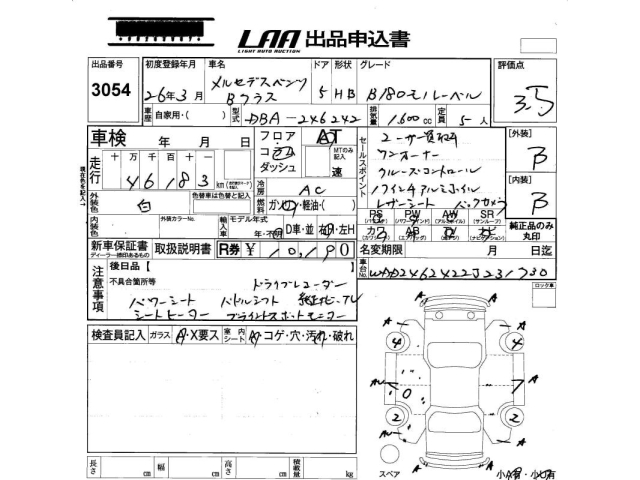 LAA 出品申込書
LIGHT AUTO AUCTION
出品番号 初度登録年月 車名 ドア 形状 グレード 評価点
3054 26年3月 メルセデスベンツ Bクラス 5 HB B180 3.5
車歴 自家用・( ) 型式 DBA-246242 排気量 1,600cc 定員 5人
車検 年 月 日 フロア コラム ダッシュ AT MTのみ記入 速
走行 十万 万 千 百 十 一
46183 km
冷房 AC
外装色 白 色替車は色替と記入 燃料 ガソリン・軽油・( )
内装色 外装カラーNo. 輸入車 モデル年式
年・不明 D車・並 右・左H
セールスポイント
ユーザー買取
ワンオーナー
クルーズコントロール
17インチアルミホイル
レザーシート バックカメラ
PS PW AW SR
(パワステ) (パワーウインド) (アルミホイル) (サンルーフ)
カワ AB TV ナビ
[外装] B
[内装] B
純正品のみ丸印
新車保証書 取扱説明書 R券 ¥ 10,190 名変期限 月 日迄
ディーラー捺印あるもの
車台No. WDD2462422J231730
注意事項 後日品【
不具合箇所等 ドライブレコーダー
パワーシート パドルシフト
シートヒーター ブラインドスポットモニター
ロック車
検査員記入 ガラス A・X要ス 室内シート A・コゲ・穴・汚れ・破れ
A A
4 A 4
2 2
A A
長さ cm 幅 cm 高さ cm 積載量 kg
スペア